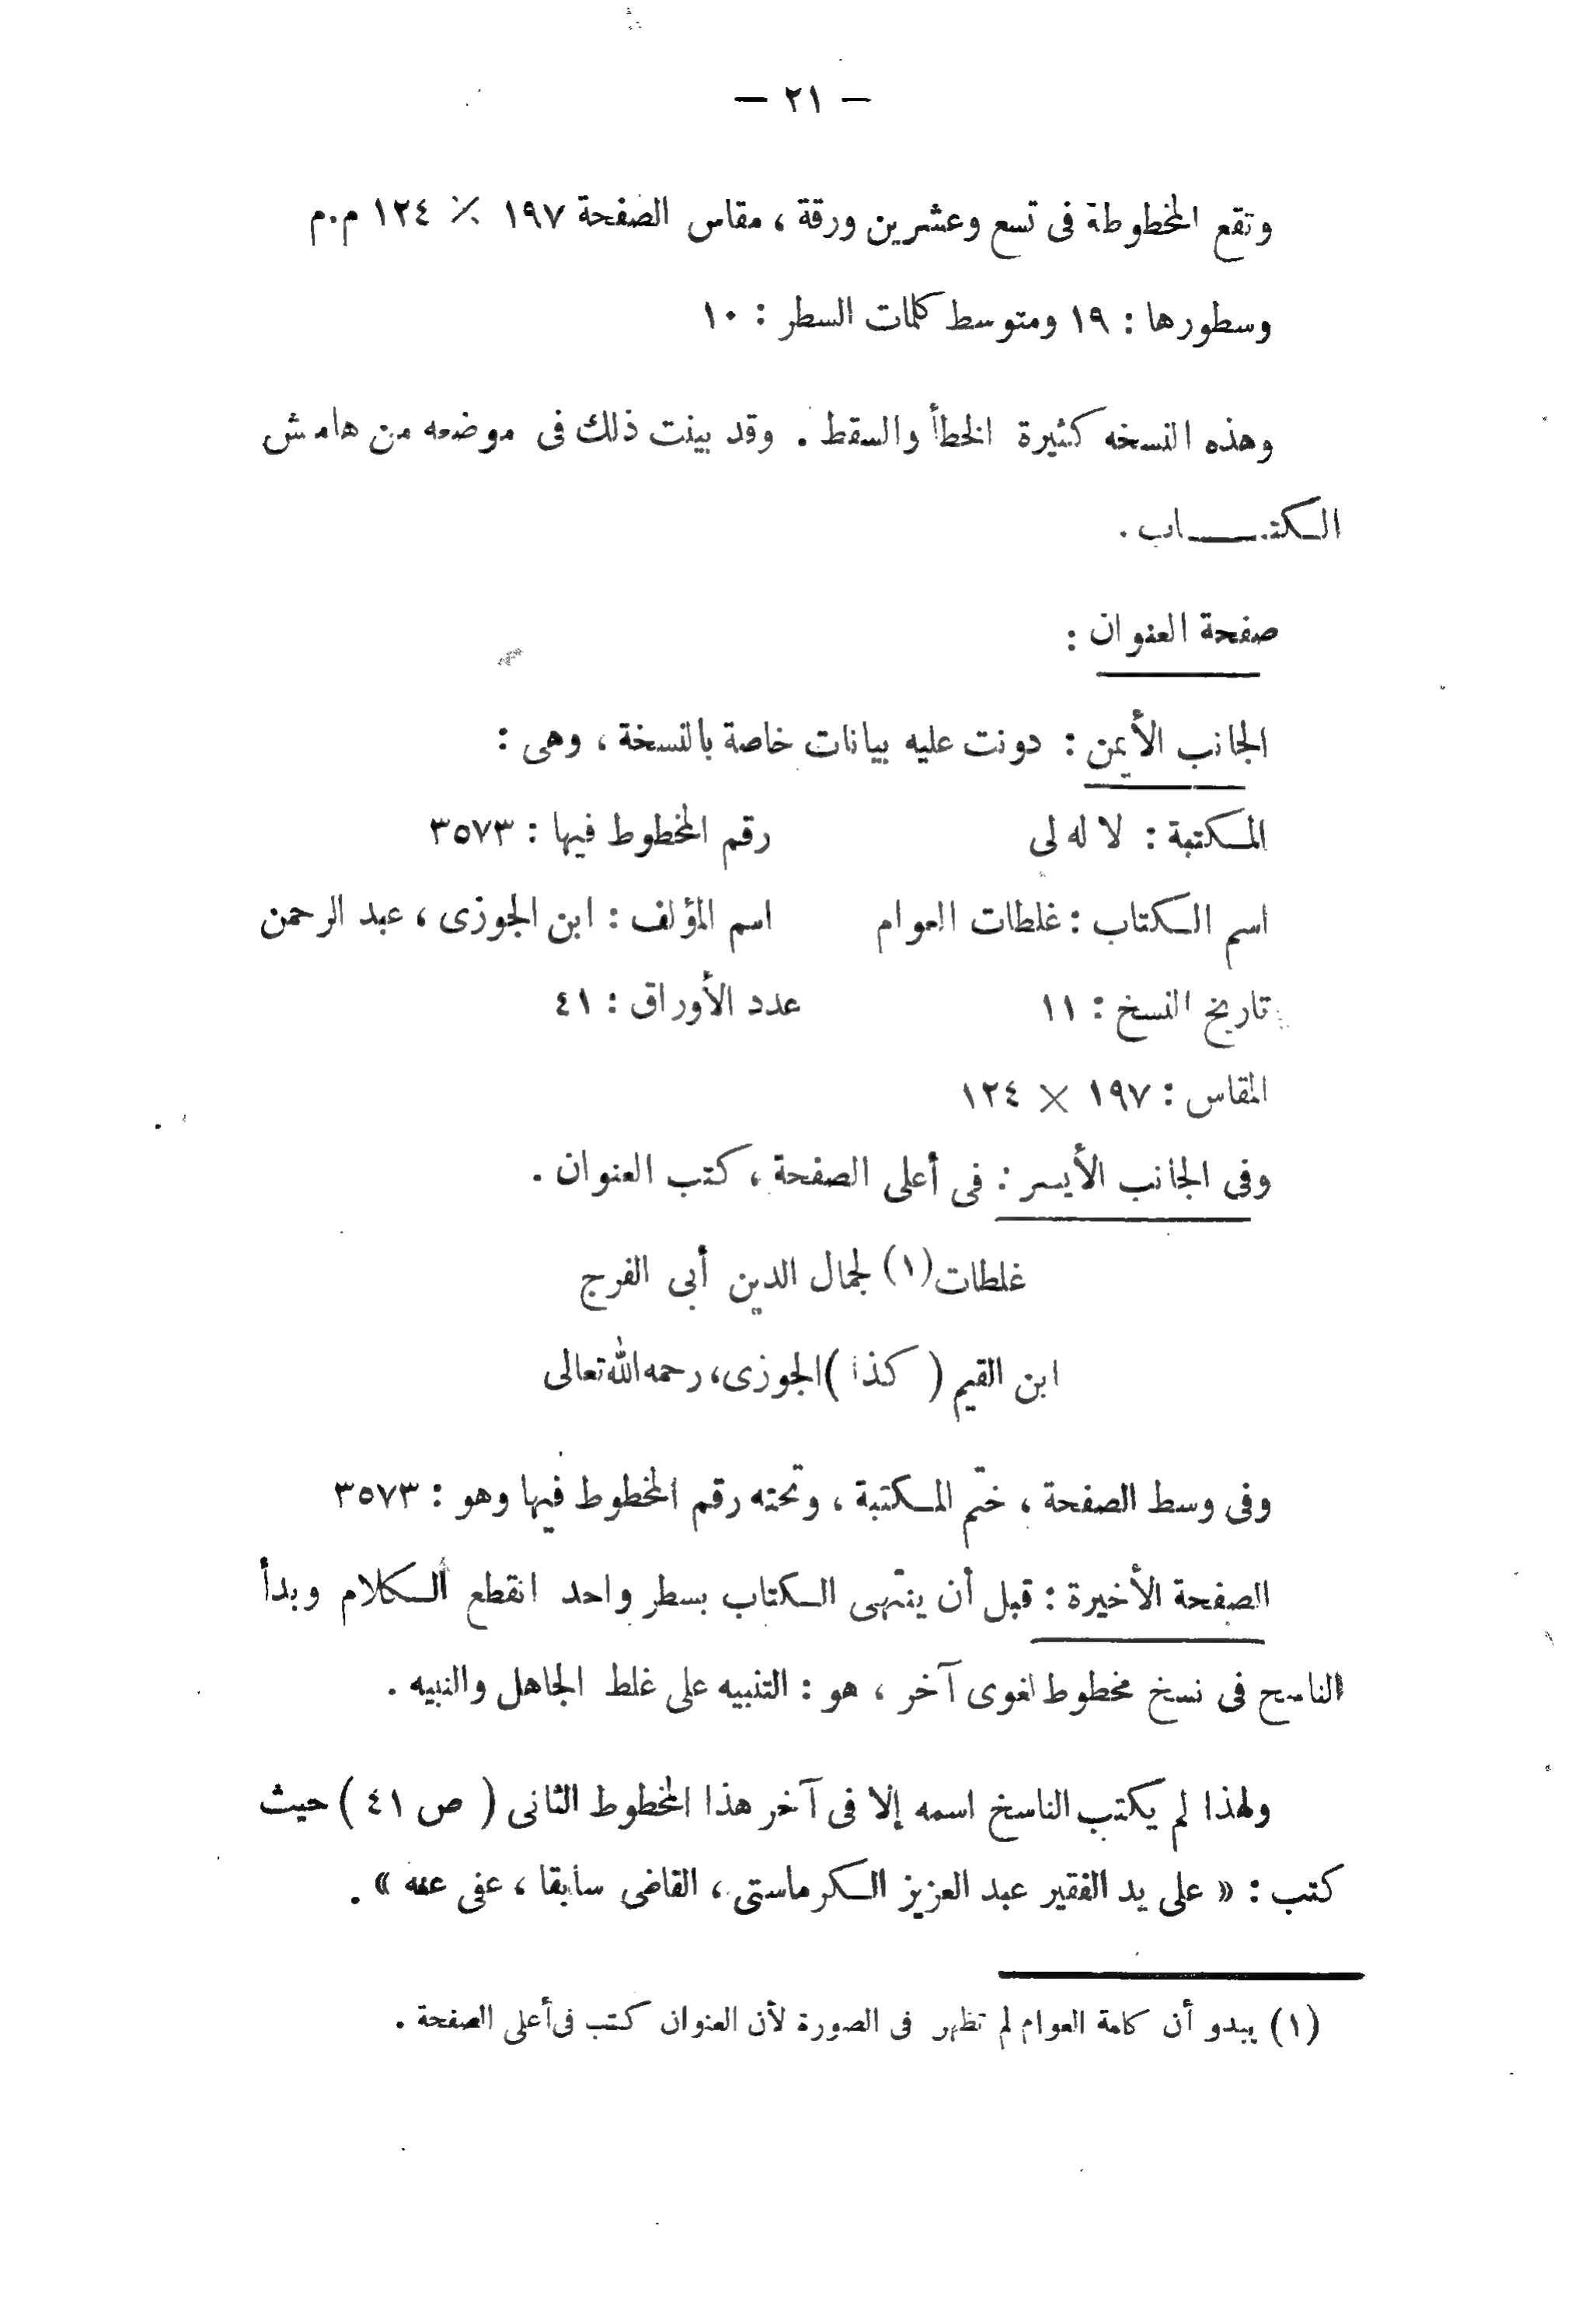 — ٢١ —
وتقع المخطوطة فى تسع وعشرين ورقة ، مقاس الصفحة ١٩٧ × ١٢٤ م.م
وسطورها : ١٩ ومتوسط كلمات السطر : ١٠
وهذه النسخه كثيرة الخطأ والسقط . وقد بينت ذلك فى موضعه من هامش
الكتـــاب .
صفحة العنوان :
الجانب الأيمن : دونت عليه بيانات خاصة بالنسخة ، وهى :
المكتبة : لا له لى رقم المخطوط فيها : ٣٥٧٣
اسم الكتاب : غلطات العوام اسم المؤلف : ابن الجوزى ، عبد الرحمن
تاريخ النسخ : ١١ عدد الأوراق : ٤١
المقاس : ١٩٧ × ١٢٤
وفى الجانب الأيسر : فى أعلى الصفحة ، كتب العنوان .
غلطات (١) لجمال الدين أبى الفرج
ابن القيم ( كذا ) الجوزى ، رحمه الله تعالى
وفى وسط الصفحة ، ختم المكتبة ، وتحته رقم المخطوط فيها وهو : ٣٥٧٣
الصفحة الأخيرة : قبل أن ينتهى الكتاب بسطر واحد انقطع الكلام وبدأ
الناسخ فى نسخ مخطوط لغوى آخر ، هو : التنبيه على غلط الجاهل والنبيه .
ولهذا لم يكتب الناسخ اسمه إلا فى آخر هذا المخطوط الثانى ( ص ٤١ ) حيث
كتب : « على يد الفقير عبد العزيز الكرماستى ، القاضى سابقا ، عفى عنه » .
(١) يبدو أن كلمة العوام لم تظهر فى الصورة لأن العنوان كتب فى أعلى الصفحة .